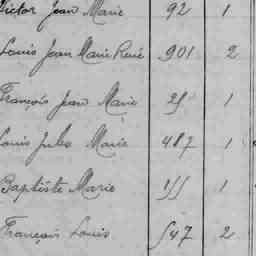 Victor Jean Marie 92 1
Louis Jean Marie René 901 2
François Jean Marie 25 1
Louis Jules Marie 487 1
Baptiste Marie 155 1
François Louis 547 2